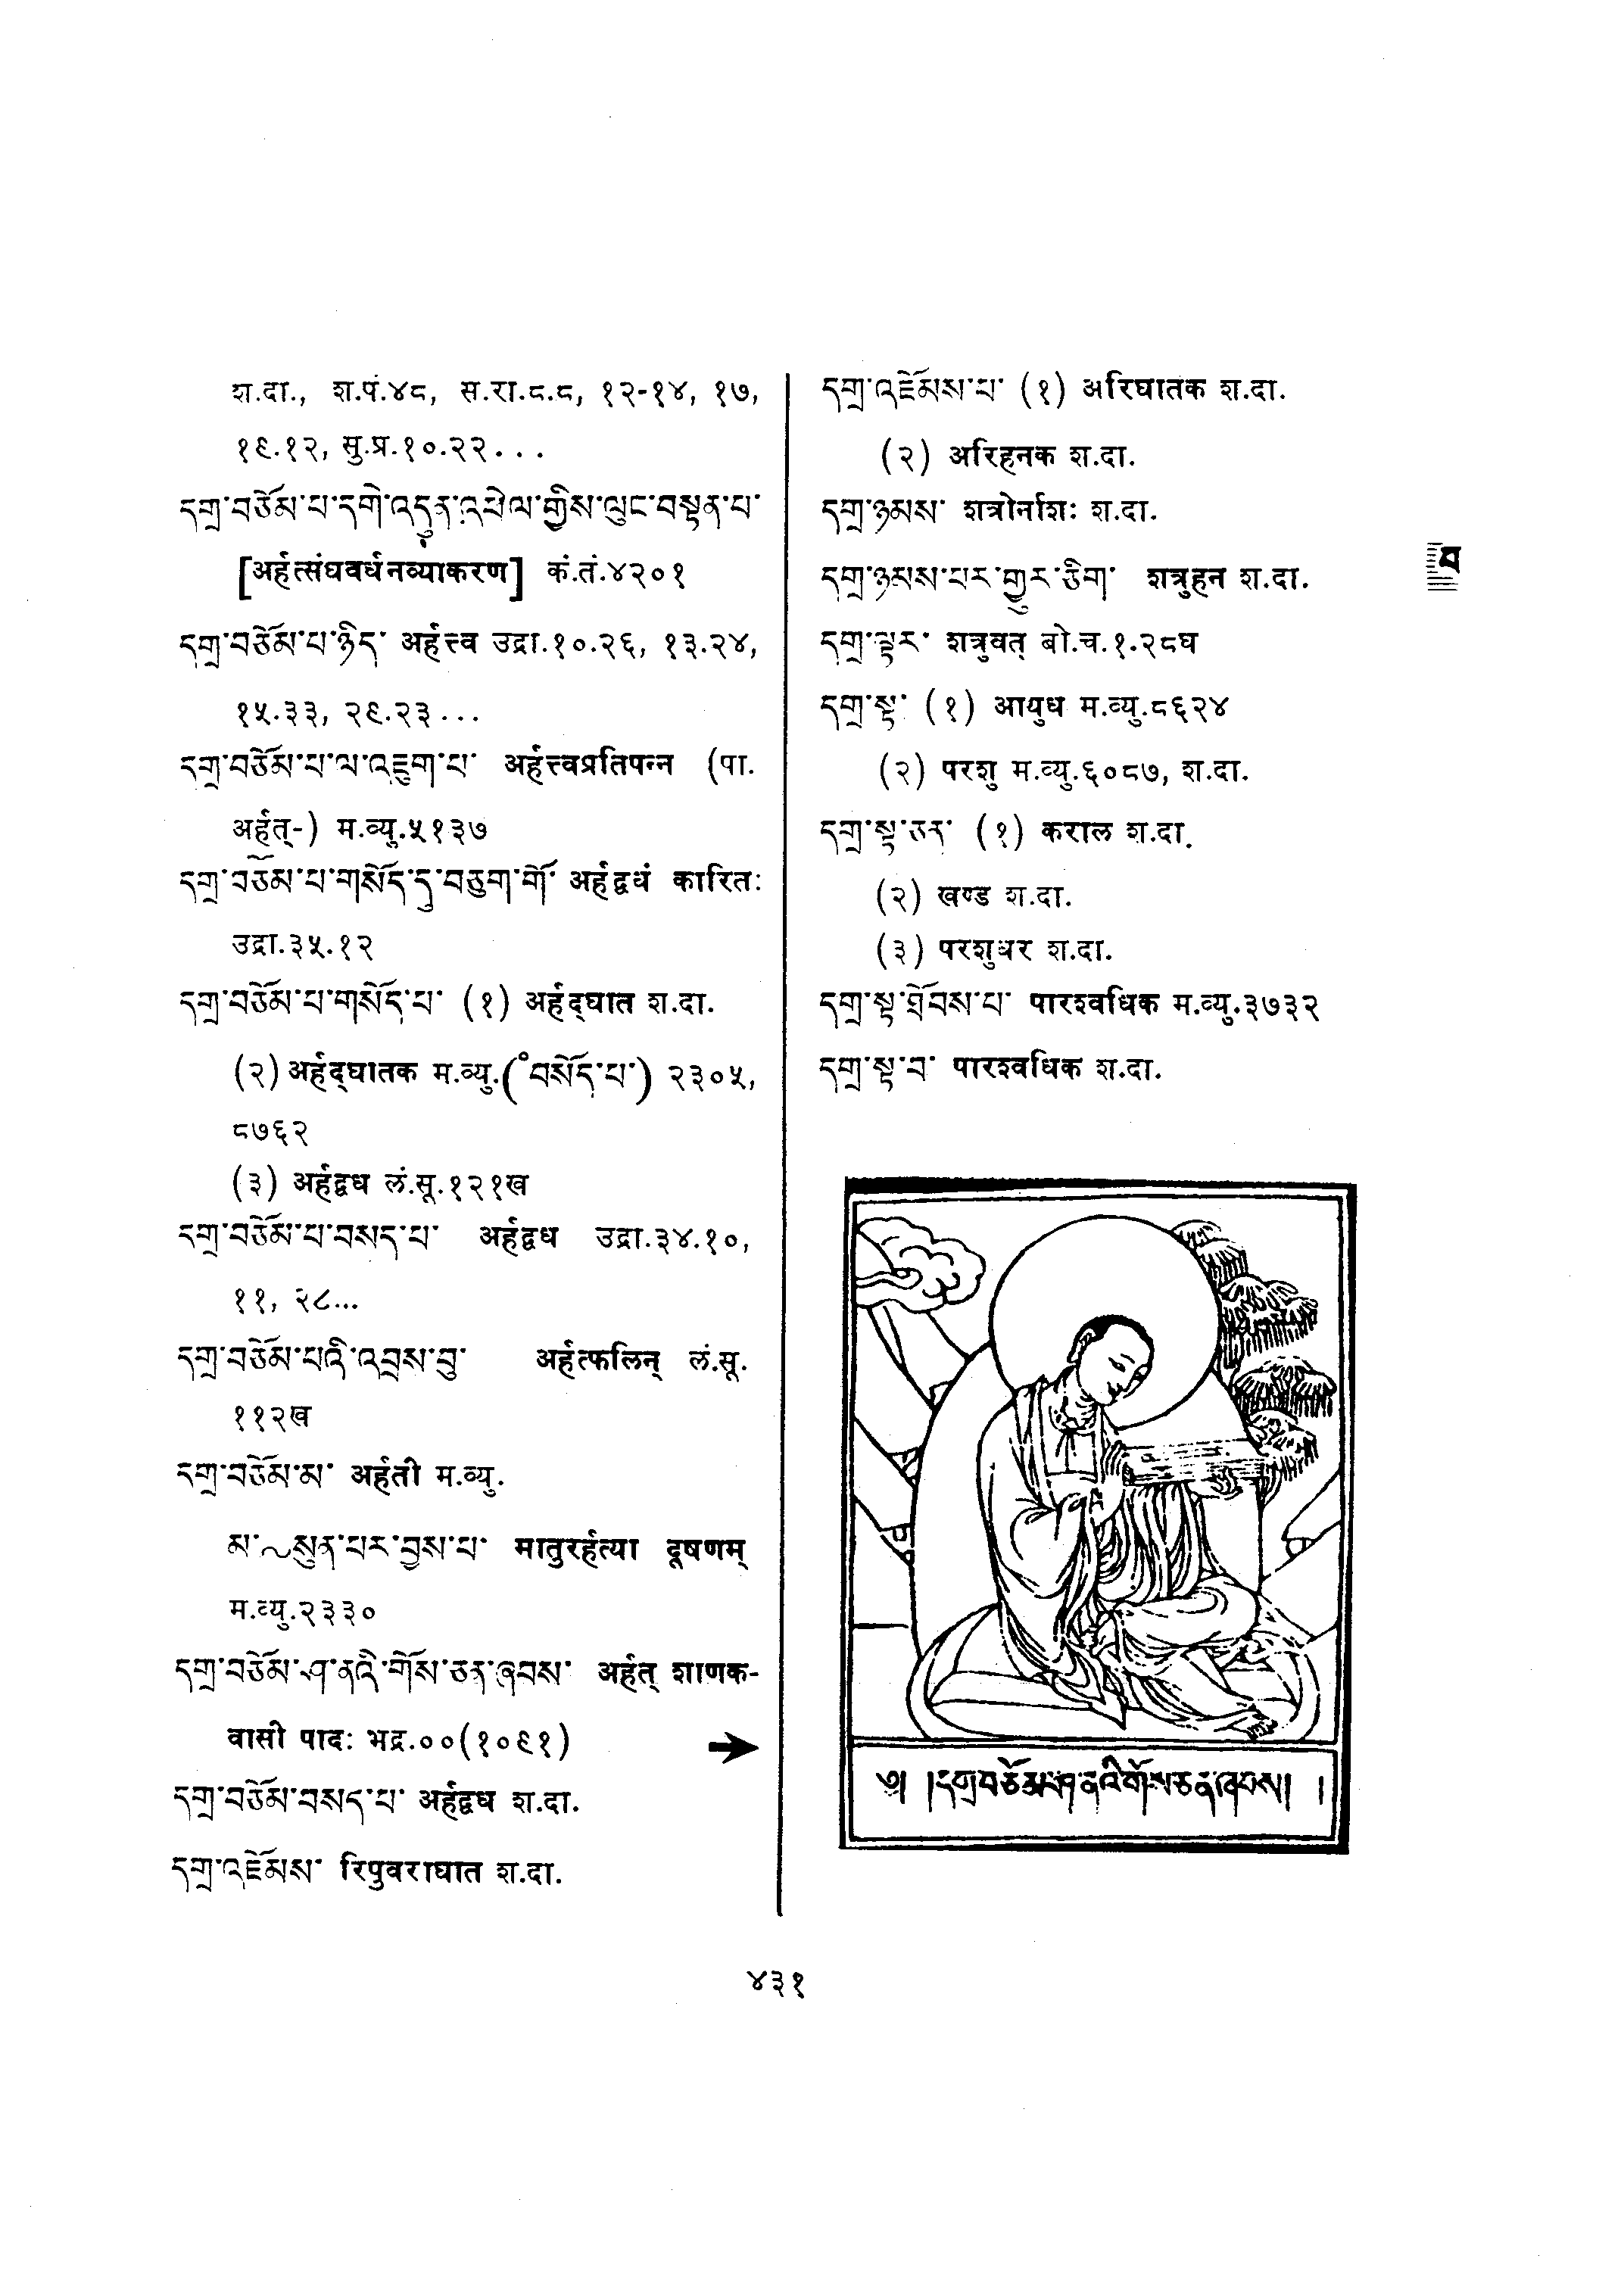 श.दा., श.पं.४८, स.रा.८.८, १२-१४, १७,
१९.१२, सु.प्र.१०.२२...
དགྲ་བཅོམ་པ་དགེ་འདུན་འཕེལ་གྱིས་ལུང་བསྟན་པ་
[अर्हत्संघवर्धनव्याकरण] कं.तं.४२०१
དགྲ་བཅོམ་པ་ཉིད་ अर्हत्त्व उद्रा.१०.२६, १३.२४,
१५.३३, २९.२३...
དགྲ་བཅོམ་པ་ལ་འཇུག་པ་ अर्हत्त्वप्रतिपन्न (पा.
अर्हत्-) म.व्यु.५१३७
དགྲ་བཅོམ་པ་གསོད་དུ་བཅུག་གོ་ अर्हद्वधं कारितः
उद्रा.३५.१२
དགྲ་བཅོམ་པ་གསོད་པ་ (१) अर्हद्घात श.दा.
(२) अर्हद्घातक म.व्यु.(॰བསོད་པ་) २३०५,
८७६२
(३) अर्हद्वध लं.सू.१२१ख
དགྲ་བཅོམ་པ་བསད་པ་ अर्हद्वध उद्रा.३४.१०,
११, २८...
དགྲ་བཅོམ་པའི་འབྲས་བུ་ अर्हत्फलिन् लं.सू.
११२ख
དགྲ་བཅོམ་མ་ अर्हती म.व्यु.
མ་~སུན་པར་བྱས་པ་ मातुरर्हत्या दूषणम्
म.व्यु.२३३०
དགྲ་བཅོམ་ཤ་ནའི་གོས་ཅན་ཞབས་ अर्हत् शाणक-
वासी पादः भद्र.००(१०९१)
དགྲ་བཅོམ་བསད་པ་ अर्हद्वध श.दा.
དགྲ་འཇོམས་ रिपुवराघात श.दा.
དགྲ་འཇོམས་པ་ (१) अरिघातक श.दा.
(२) अरिहनक श.दा.
དགྲ་ཉམས་ शत्रोर्नाशः श.दा.
དགྲ་ཉམས་པར་གྱུར་ཅིག་ शत्रुहन श.दा.
དགྲ་ལྟར་ शत्रुवत् बो.च.१.२८घ
དགྲ་སྟ་ (१) आयुध म.व्यु.८६२४
(२) परशु म.व्यु.६०८७, श.दा.
དགྲ་སྟ་ཅན་ (१) कराल श.दा.
(२) खण्ड श.दा.
(३) परशुधर श.दा.
དགྲ་སྟ་ཐོབས་པ་ पारश्वधिक म.व्यु.३७३२
དགྲ་སྟ་བ་ पारश्वधिक श.दा.
༄། །དགྲ་བཅོམ་པ་ཤ་ནའི་གོས་ཅན་ཞབས། །
४३१